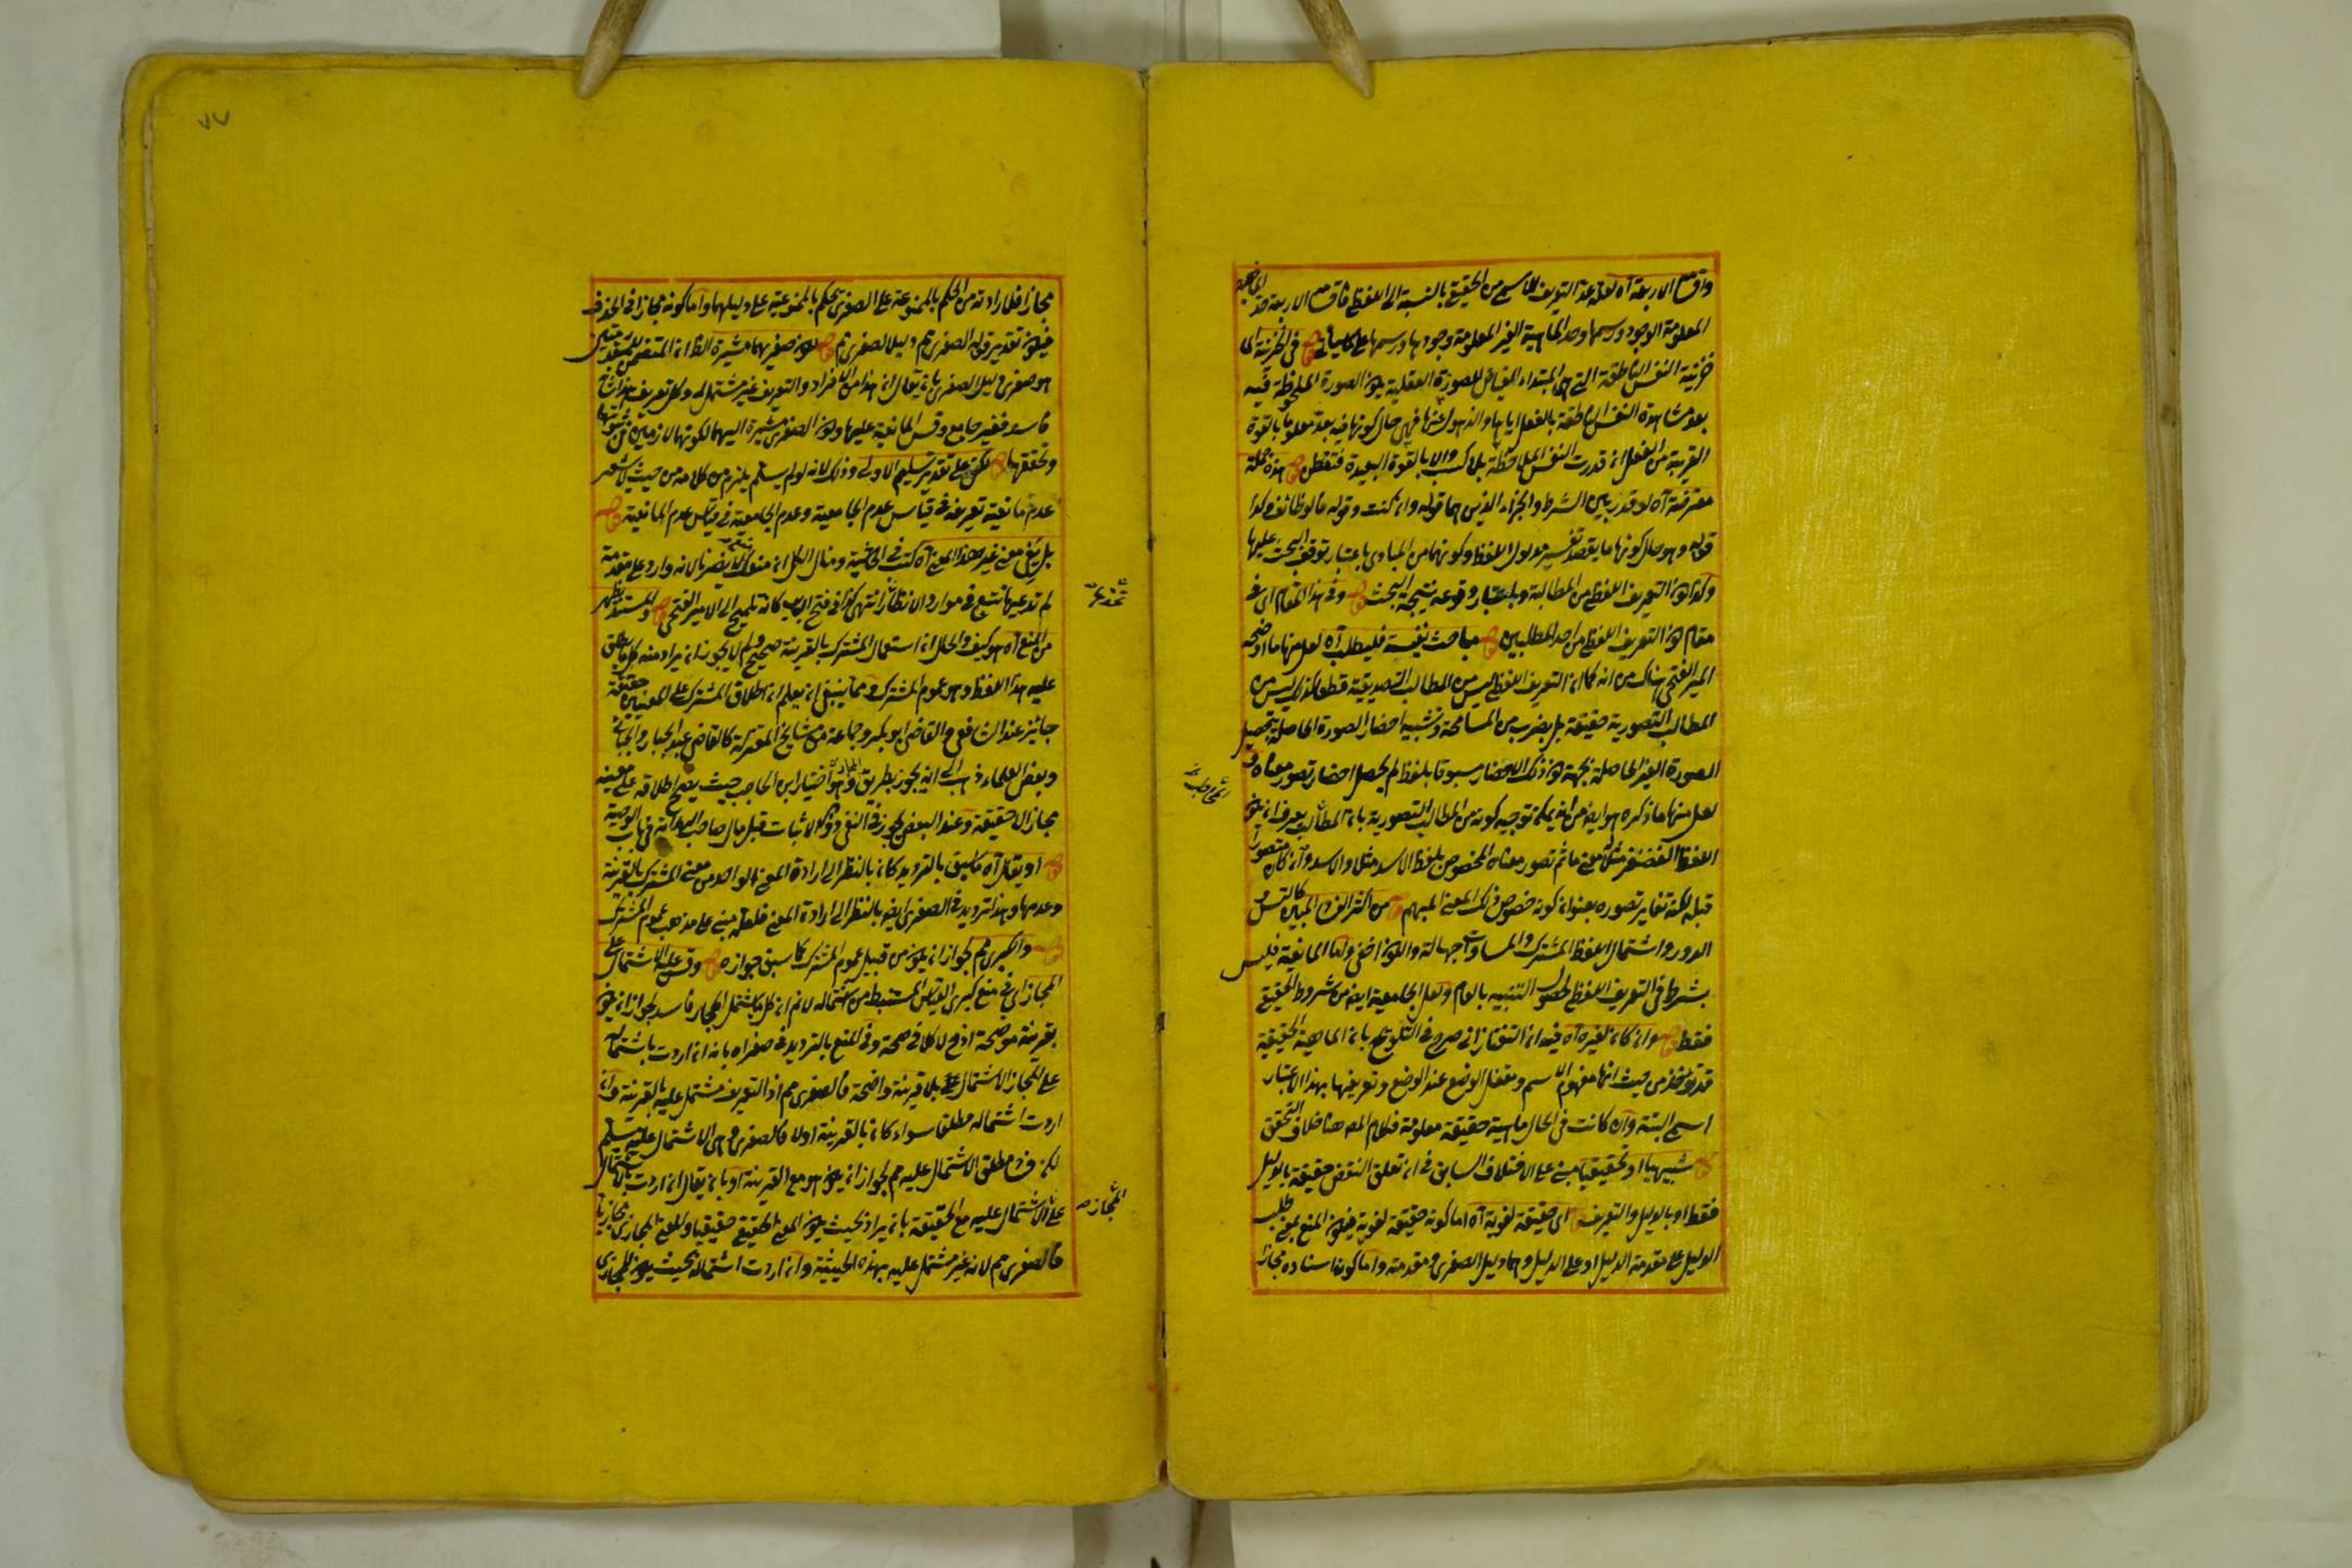 واقسام الاربعة آه لعله عد التعريف الاسمي من الحقيقي بالنسبة الى اللفظي فاقسام الاربعة حد الماهية
المعلومة الوجود ورسمها وحد الماهية الغير المعلومة وجودها ورسمها على كلا
خزينة النفس الناطقة التي هي المبتداء الفياض للصورة العقلية يكون الصورة الملحوظة فيه
بعد مشاهدة النفس الناطقة بالفعل اياها والذهول عنها فهي حال كونها فيه بعد معلومة بالقوة
القريبة من الفعل ان قدرت النفس الملاحظة بلا كسب والا بالقوة البعيدة فتفطن هذه جملة
معترضة آه لو قدر بين الشرط والجزاء الذين هما قوله وان كنت وقوله فالوظائف وكذا
قوله وهو حال كونها ما يقصد تفسير مدلول اللفظ وكونها من المبادي باعتبار توقف البحث عليها
وكذا كون التعريف اللفظي من المطالب وباعتبار وقوعه نتيجة البحث وفي هذا المقام اى في
مقام كون التعريف اللفظي من احد المطلبين مباحث نفيسة فليطلب آه لعل منها ما اوضحه
المير الفتحي هناك من انه كما ان التعريف اللفظي ليس من المطالب التصديقية قطعا كذلك ليس من
المطالب التصورية حقيقة بل بضرب من المسامحة وتشبيه احضار الصورة الحاصلة بتحصيل
الصورة الغير الحاصلة بجهة كون ذلك الاحضار مسبوقا بلفظ لم يحصل احضار تصور معناه
لعل منها ما ذكره هو ايضا من انه يمكن توجيه كونه من المطالب التصورية بان المطالب يعرف ان
اللفظ الغضنفر مثلا معنى ما ثم تصور معناه المخصوص بلفظ الاسد مثلا والاسد وان كان متصورا
قبله لكنه تغاير تصوره بعنوان كونه خصوص ذلك المعنى المبهم من اكثر الفرد المباين كالتس
الدور واشتمال اللفظ المشترك والمساوات جهالة والكون اخفى واما المانعية فليس
بشرط في التعريف اللفظي لحصول التنبيه بالعام ولعل الجامعية ايضا من شروط الحقيقي
فقط وان كان لغيره آه فيه ان التفتازاني صرح في التلويح بان الماهية الحقيقية
قد تؤخذ من حيث انها مفهوم الاسم ومتعقل الوضع عند الوضع وتعريفها بهذا الاعتبار
اسمي البتة وان كانت في الحال ماهية حقيقة معلومة فكلام المص هنا خلاف التحقق
تشبيهيا او تحقيقيا مبني على الاختلاف السابق في ان تعلق النقض حقيقة بالدليل
فقط او بالدليل والتعريف اى حقيقة لغوية آه اما كونه حقيقة لغوية فيكون المنع بمعنى طلب
الدليل على مقدمة الدليل او على الدليل وهما دليل الصغرى ومقدمته واما كون اسناده مجازا
مجازا فلارادته من الحكم بالممنوعة على الصغرى حكم بالممنوعية على دليلها واما كونه مجازا في الحذف
فيكون تقدير قوله الصغرى مم دليل الصغرى مم
هو صغرى دليل الصغرى بان يقال ان هذا من الافراد والتعريف غير مشتمل له وكل تعريف هذا شانه
فاسد فغير جامع وقس المانعية عليها وكون الصغرى مشيرة اليهما لكونهما لازمين من ثبوتها
وتحققها لكن على تقدير تسليم الاولى وذلك لانه لو لم يسلم يلزم من كلامه من حيث لا يشعر
عدم مانعية تعريفه في قياس عدم الجامعية وعدم الجامعية في قياس عدم المانعية
بل يبقى معنى غير هذا المعنى آه كتب في الحاشية ومثال الكل ان منعك لا يضر بانه وارد على مقدمة
لم تدعيها تتبع في موارد الانظار انتهى كذا في فتح الباب كانه تلميح الى الامير الفتحي والمستند يظهر
من المنع آه هو كيف والحال ان استعمال المشترك بالقرينة صحيح ولم لا يجوز ان يراد منه كل ما يطلق
عليه هذا اللفظ وهو عموم المشترك ومما ينبغي ان يعلم ان اطلاق المشترك على المعنيين حقيقة
جائز عند الشافعي والقاضي ابو بكر وجماعة من مشايخ المعتزلة كالقاضي عبد الجبار والجبائي
وبعض العلماء ذهب الى انه يجوز بطريق المجاز وهو اختيار ابن الحاجب حيث يصح اطلاقه على معنيه
مجازا لا حقيقة وعند البعض يجوز في النفي دون الاثبات قيل مال صاحب الهداية في باب الوصية
او يقال آه ما سبق بالترديد كان بالنظر الى ارادة المعنى الواحد من معنى المشترك بالقرينة
وعدمها وهذا ترديد في الصغرى ايضا بالنظر الى ارادة المعنى فلعله مبني على مذهب عموم المشترك
والكبرى مم لجواز ان يكون من قبيل عموم المشترك كما سبق جوازه وقس عليه الاشتمال على
المجاز اى في منع كبرى القياس المستنبط من اشتماله لانم ان كل ما يشتمل المجاز فاسد لجواز ان يكون
بقرينة موضحة اذ ح لا كلام في صحته وفي المنع بالترديد في صغراه بانه ان اردت باشتماله
على المجاز الاشتمال عليه بلا قرينة واضحة فالصغرى مم اذ التعريف مشتمل عليه بالقرينة وان
اردت اشتماله مطلقا سواء كان بالقرينة اولا فالصغرى وهى الاشتمال عليه مسلم
لكن فساد مطلق الاشتمال عليه مم لجواز ان يكون هو مع القرينة او بان يقال ان اردت بالاشتمال
على الاشتمال عليه مع الحقيقة بان يراد بحيث يكون المعنى الحقيقي حقيقيا والمعنى المجازي مجازيا
فالصغرى مم لانه غير مشتمل عليه بهذه الحيثية وان اردت اشتماله بحيث يكون المجازي
المجاز صح
٧٧